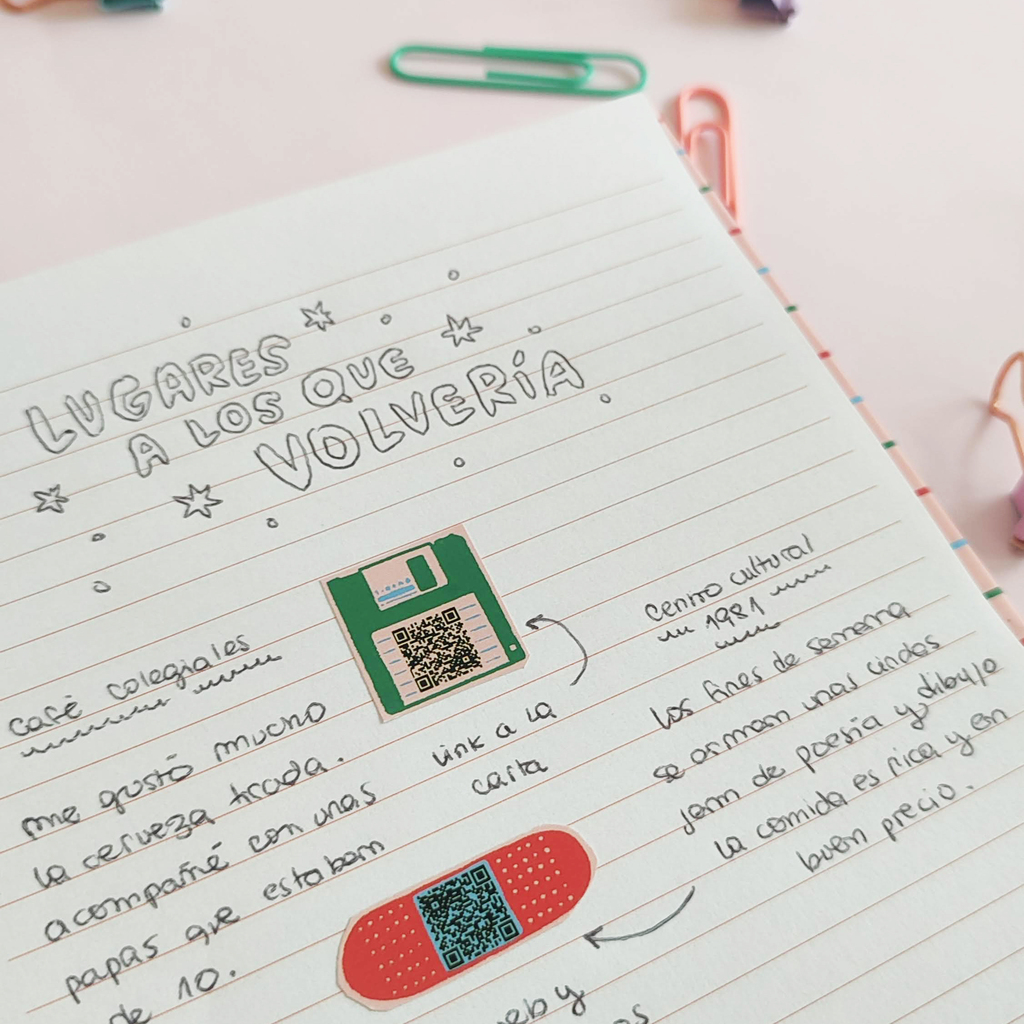 LUGARES
A LOS QUE
VOLVERÍA
café colegiales
me gustó mucho
la cerveza tirada.
acompañé con unas
papas que estaban
de 10.
link a la
carta
centro cultural
1981
los fines de semana
se arman unas lindas
jam de poesía y dibujo
la comida es rica y en
buen precio.